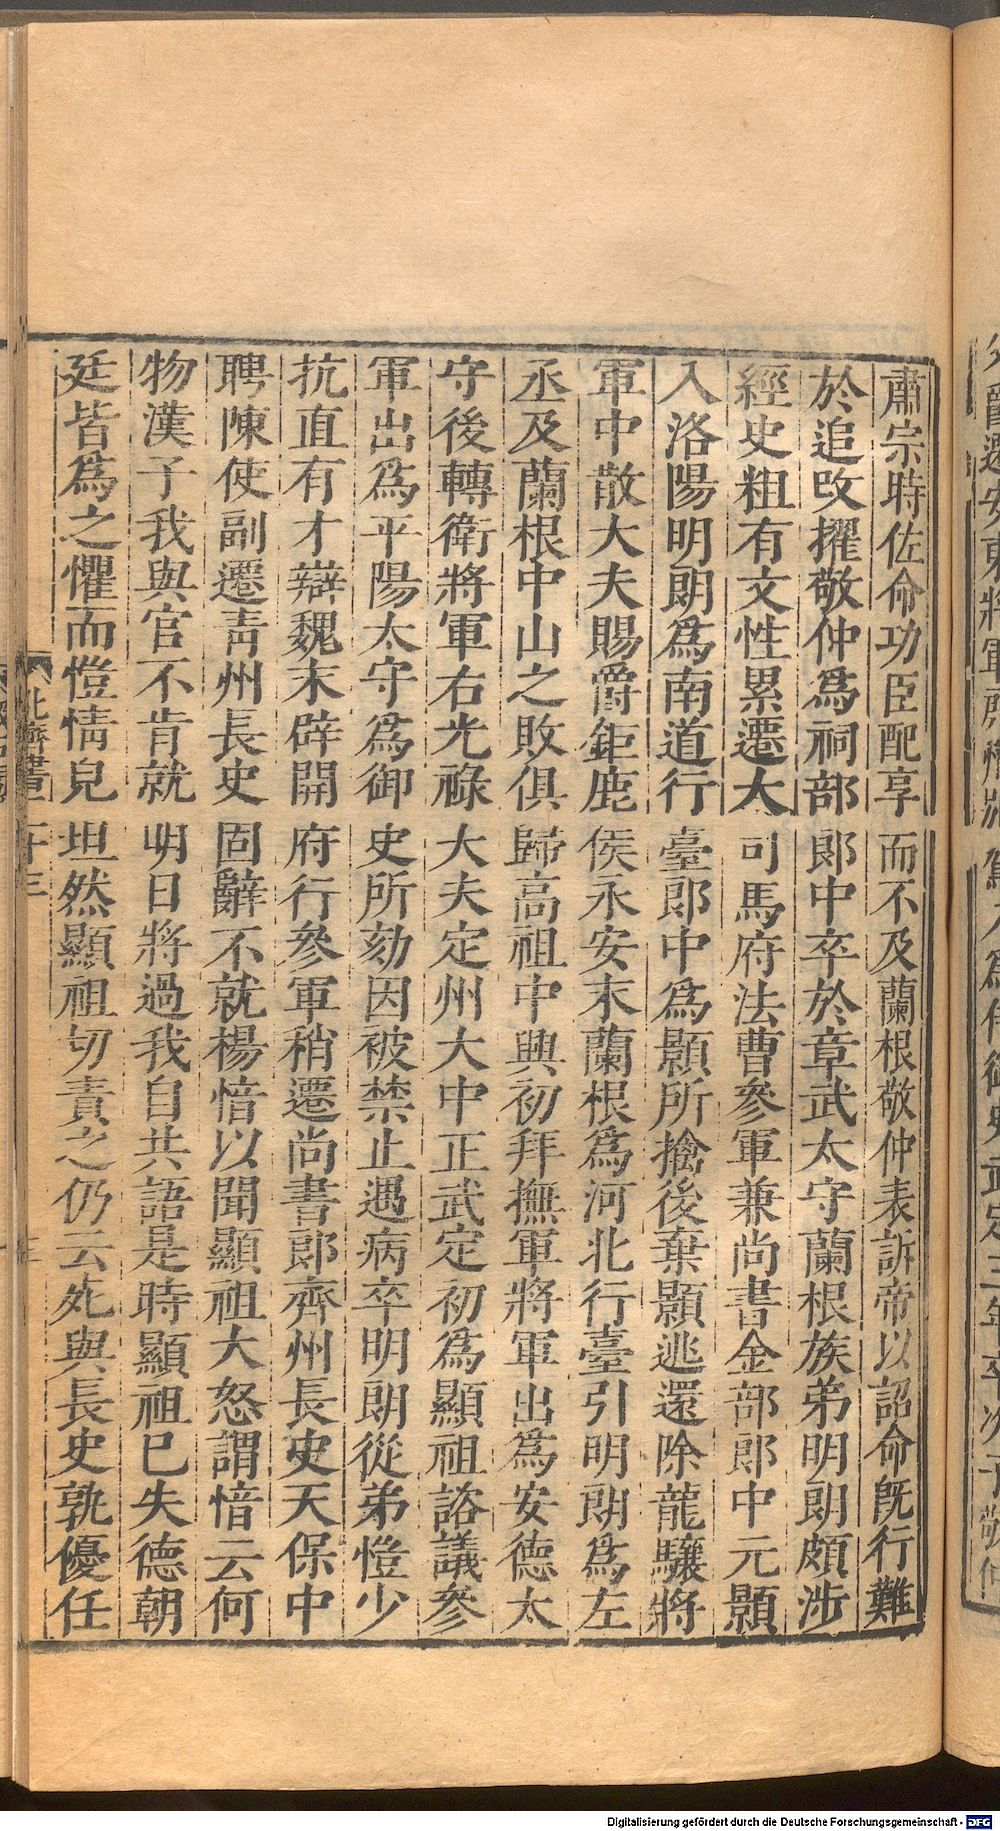 肅宗時佐命功臣配享而不及蘭根敬仲表訴帝以詔命旣行難
於追改擢敬仲爲祠部郎中卒於章武太守蘭根族弟明朗頗涉
經史粗有文性累遷大司馬府法曹參軍兼尚書金部郎中元顥
入洛陽明朗爲南道行臺郎中爲顥所擒後棄顥逃還除龍驤將
軍中散大夫賜爵鉅鹿侯永安末蘭根爲河北行臺引明朗爲左
丞及蘭根中山之敗俱歸高祖中興初拜撫軍將軍出爲安德太
守後轉衛將軍右光祿大夫定州大中正武定初爲顯祖諮議參
軍出爲平陽太守爲御史所劾因被禁止遇病卒明朗從弟愷少
抗直有才辯魏末辟開府行參軍稍遷尚書郎齊州長史天保中
聘陳使副遷靑州長史固辭不就楊愔以聞顯祖大怒謂愔云何
物漢子我與官不肯就明日將過我自共語是時顯祖已失德朝
廷皆爲之懼而愷情皃坦然顯祖切責之仍云死與長史孰優任
北齊書二十三
Digitalisierung gefördert durch die Deutsche Forschungsgemeinschaft - DFG